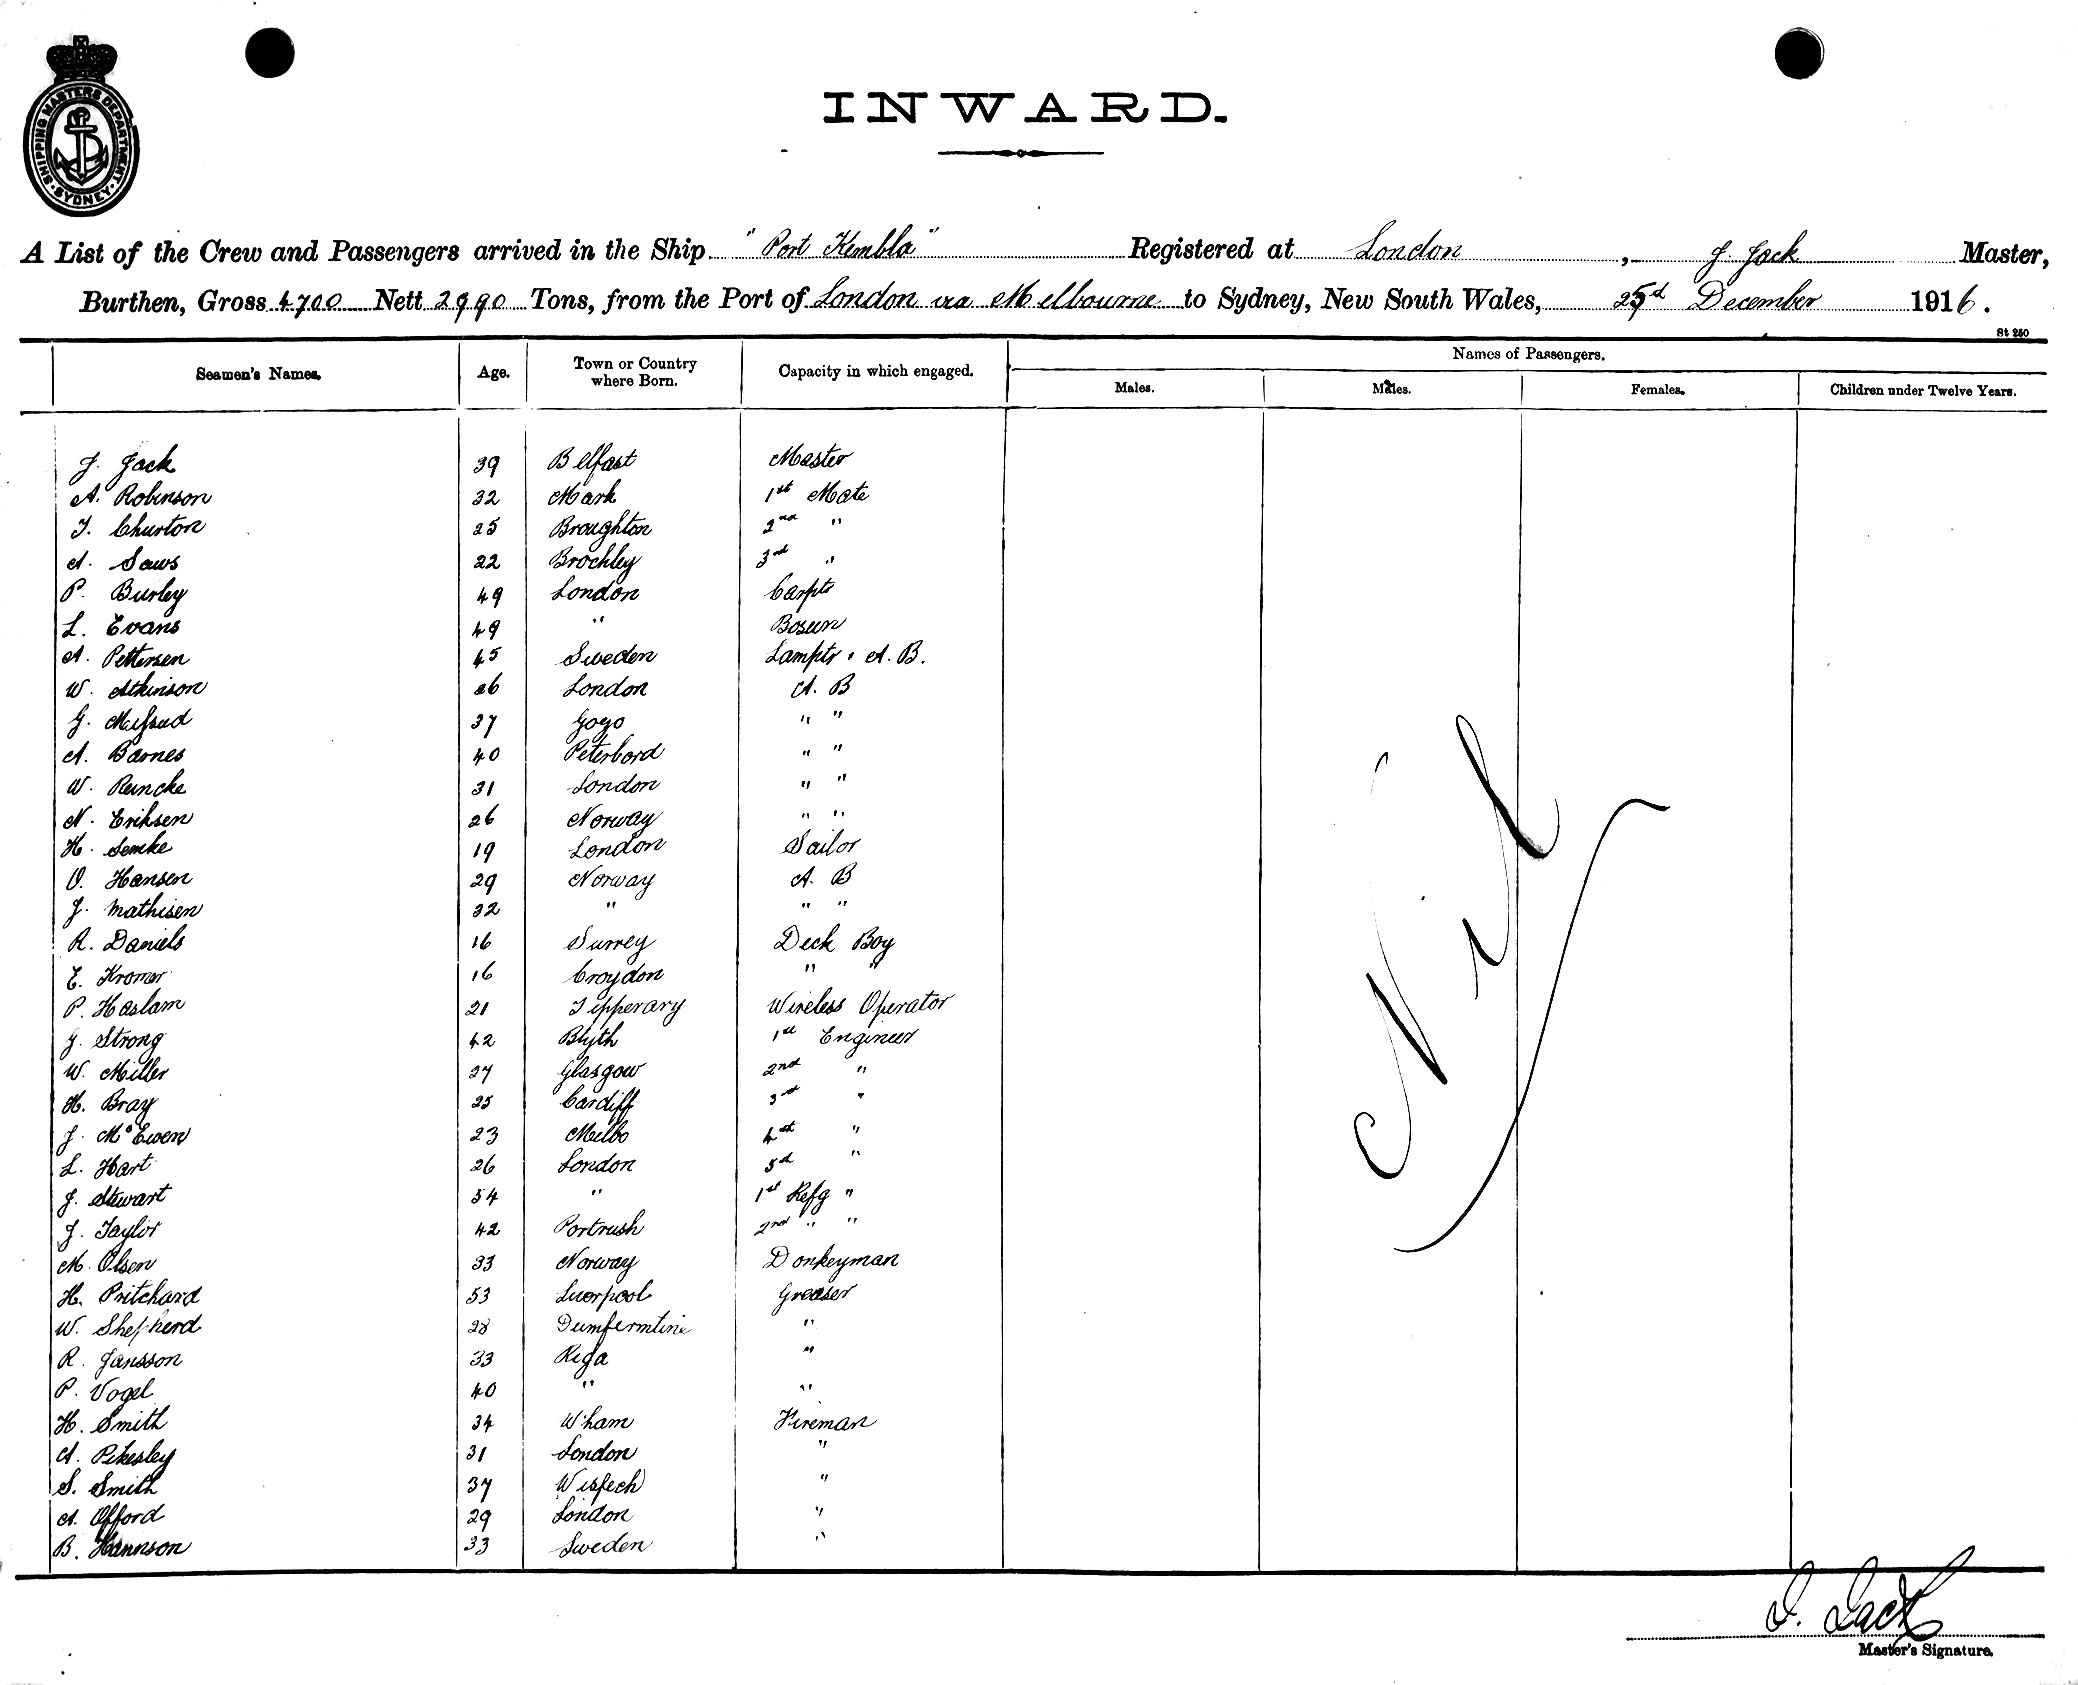 SHIPPING MASTERS DEPARTMENT · SYDNEY ·
INWARD.
A List of the Crew and Passengers arrived in the Ship "Port Kembla" Registered at London, J. Jack Master,
Burthen, Gross 4700 Nett 2990 Tons, from the Port of London via Melbourne to Sydney, New South Wales, 25d December 1916.
St 250
Seamen's Names. Age. Town or Country where Born. Capacity in which engaged. Names of Passengers.
Males. Males. Females. Children under Twelve Years.
J. Jack 39 Belfast Master
A. Robinson 32 Mark 1st Mate
T. Churton 25 Broughton 2nd "
A. Saws 22 Brockley 3rd "
P. Burley 49 London Carptr
L. Evans 49 " Bosun
A. Pettersen 45 Sweden Lamptr & A. B.
W. Atkinson 26 London A. B
G. Mifsud 37 Gozo " "
A. Barnes 40 Peterboro " "
W. Reincke 31 London " "
N. Eriksen 26 Norway " "
H. Semke 19 London Sailor
O. Hansen 29 Norway A. B
J. Mathisen 32 " " "
R. Daniels 16 Surrey Deck Boy
E. Kromer 16 Croydon " "
P. Haslam 21 Tipperary Wireless Operator
J. Strong 42 Blyth 1st Engineer
W. Miller 27 Glasgow 2nd "
H. Bray 25 Cardiff 3rd "
J. McEwen 23 Melbo 4th "
L. Hart 26 London 5th "
J. Stewart 54 " 1st Refg "
J. Taylor 42 Portrush 2nd " "
M. Olsen 33 Norway Donkeyman
H. Pritchard 53 Liverpool Greaser
W. Shepherd 28 Dumfermline "
R. Jansson 33 Riga "
P. Vogel 40 " "
H. Smith 34 W'ham Fireman
A. Pikesley 31 London "
S. Smith 37 Wisbech "
A. Offord 29 London "
B. Hannson 33 Sweden "
Nil
J. Jack
Master's Signature.